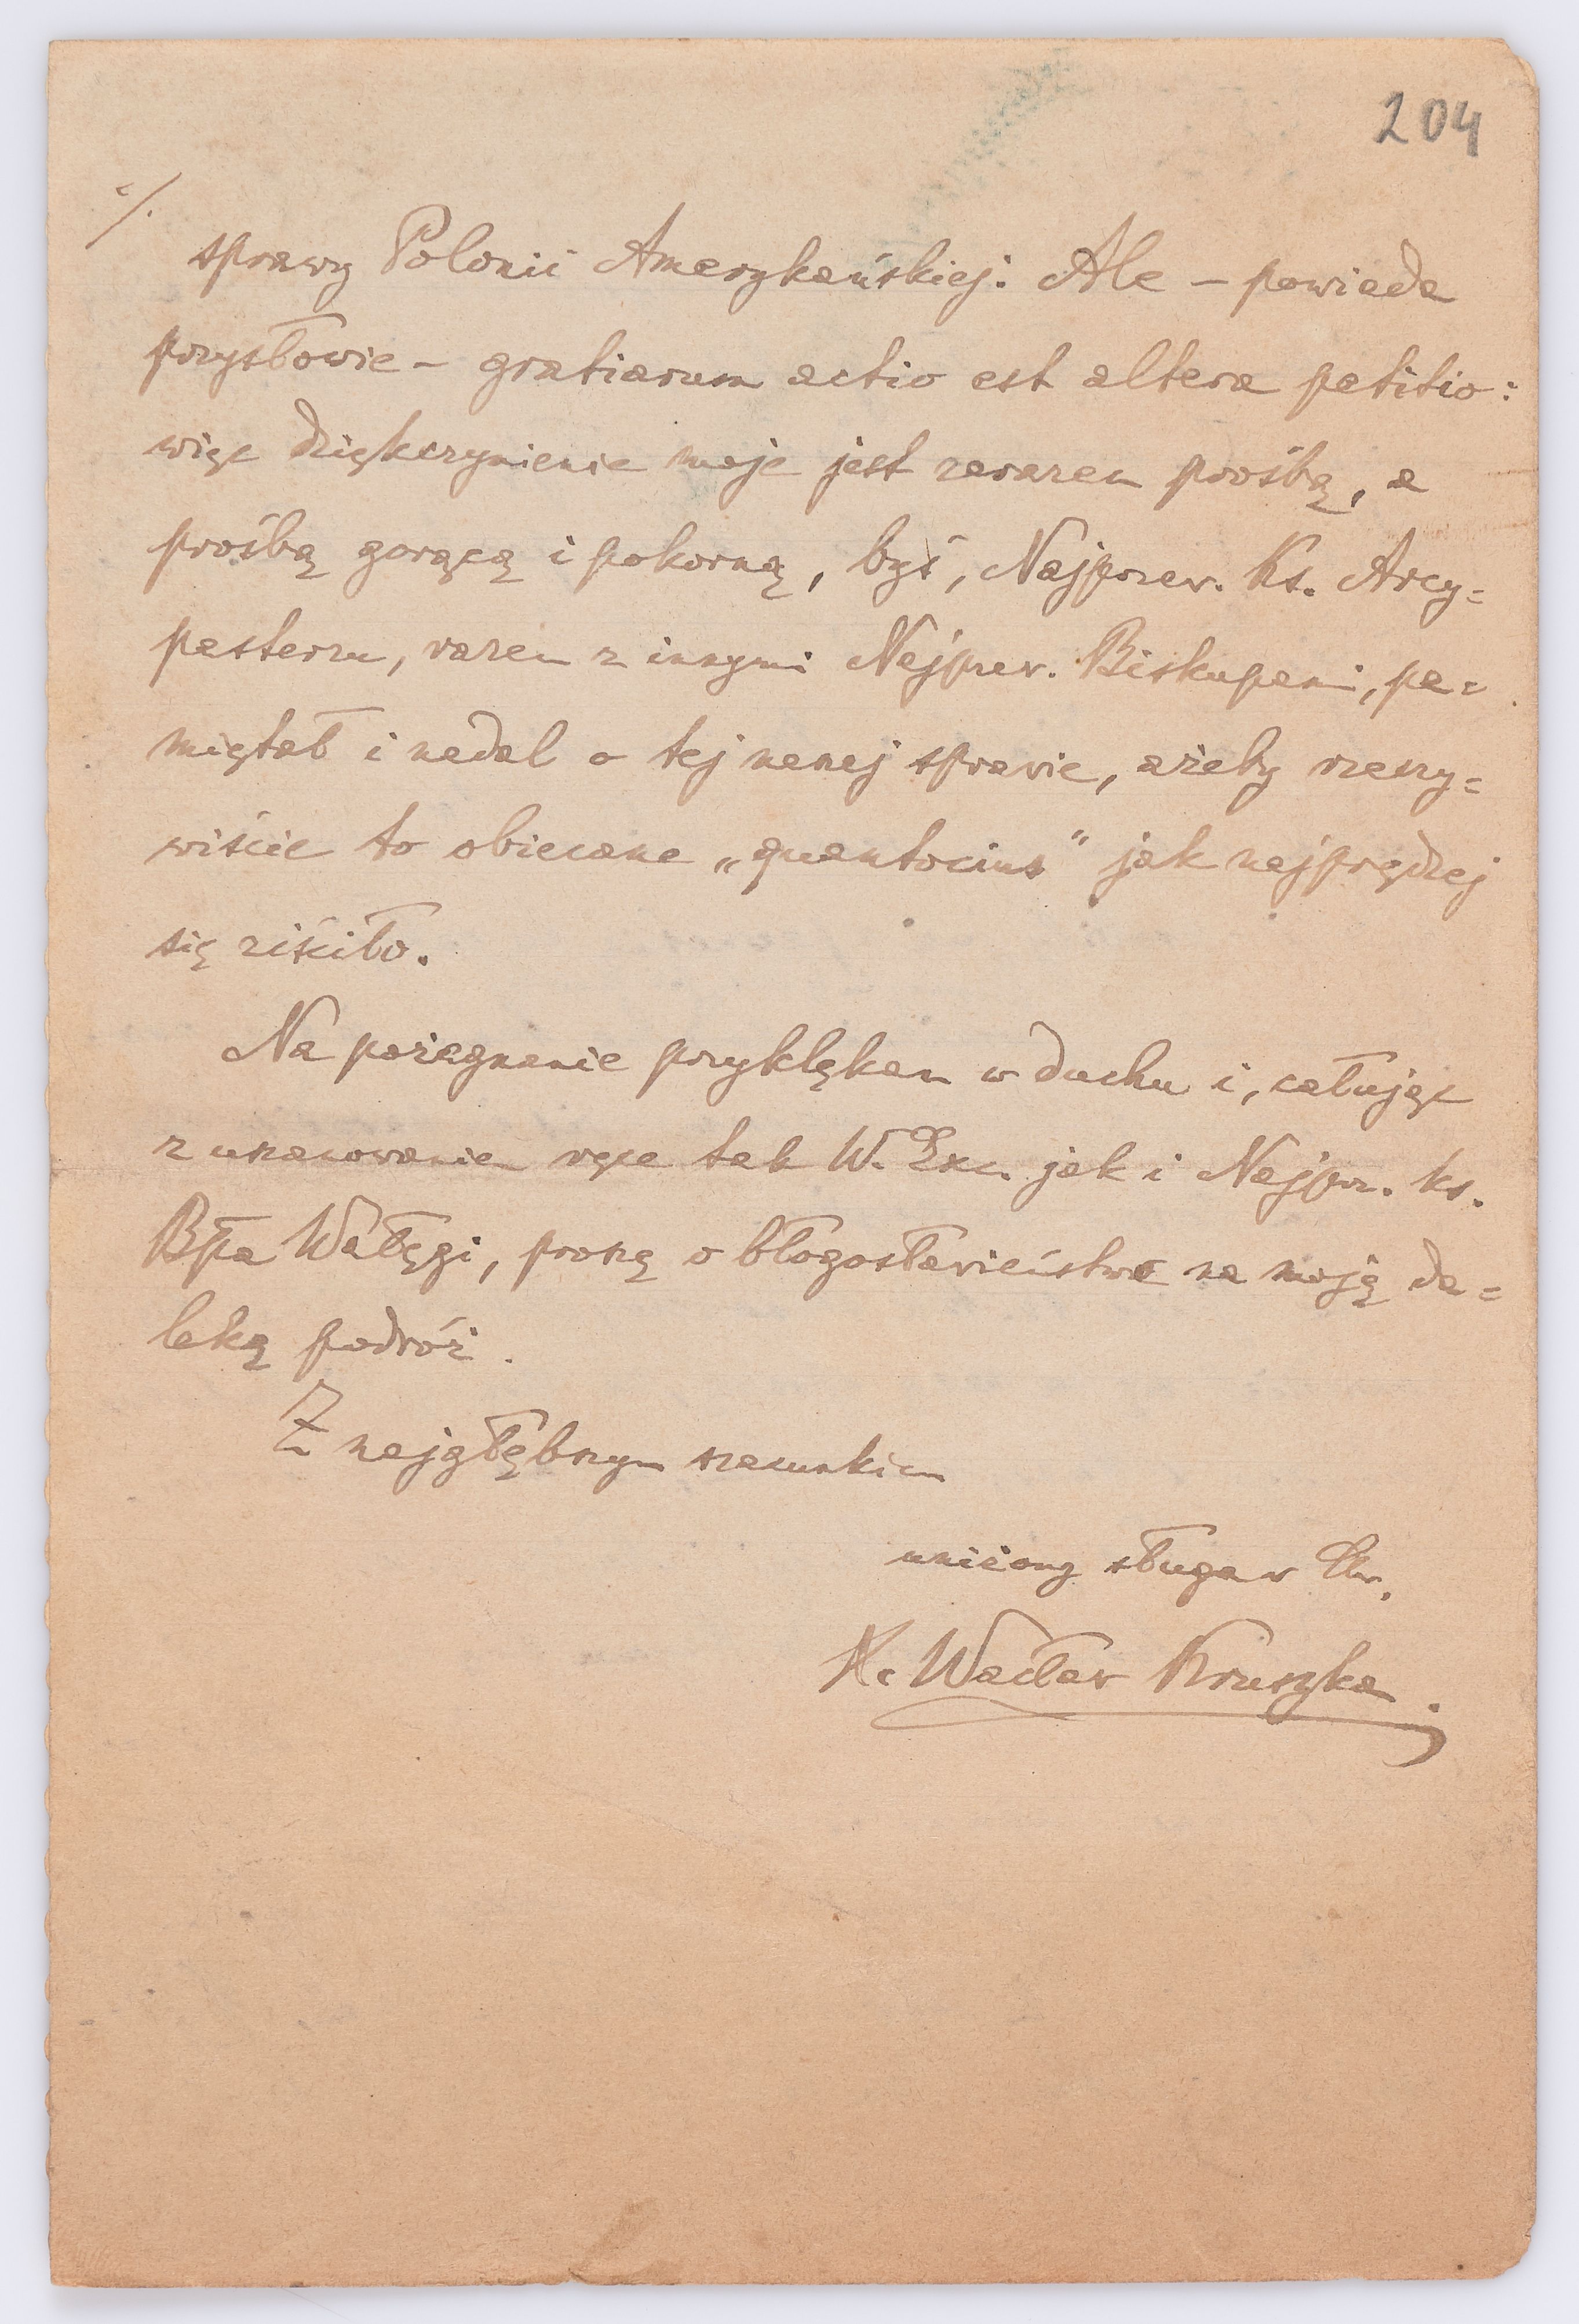 204
·/.
sprawy Polonii Amerykańskiej. Ale – powiada
przysłowie – gratiarum actio est altera petitio:
więc dziękczynienie moje jest zarazem prośbą, a
prośbą gorącą i pokorną, byś, Najprzew. Ks. Arcy=
pasterzu, razem z innymi Najprzew. Biskupami, pa=
miętał i nadal o tej naszej sprawie, ażeby rzeczy=
wiście to obiecane „quantocius" jak najprędzej
się ziściło.
Na pożegnanie przyklękam w duchu i, całując
z uszanowaniem ręce tak W. Exc. jak i Najprz. ks.
Bpa Wałęgi, proszę o błogosławieństwo na moją da=
leką podróż.
Z najgłębszym szacunkiem
uniżony sługa w Chr.
X. Wacław Kruszka.